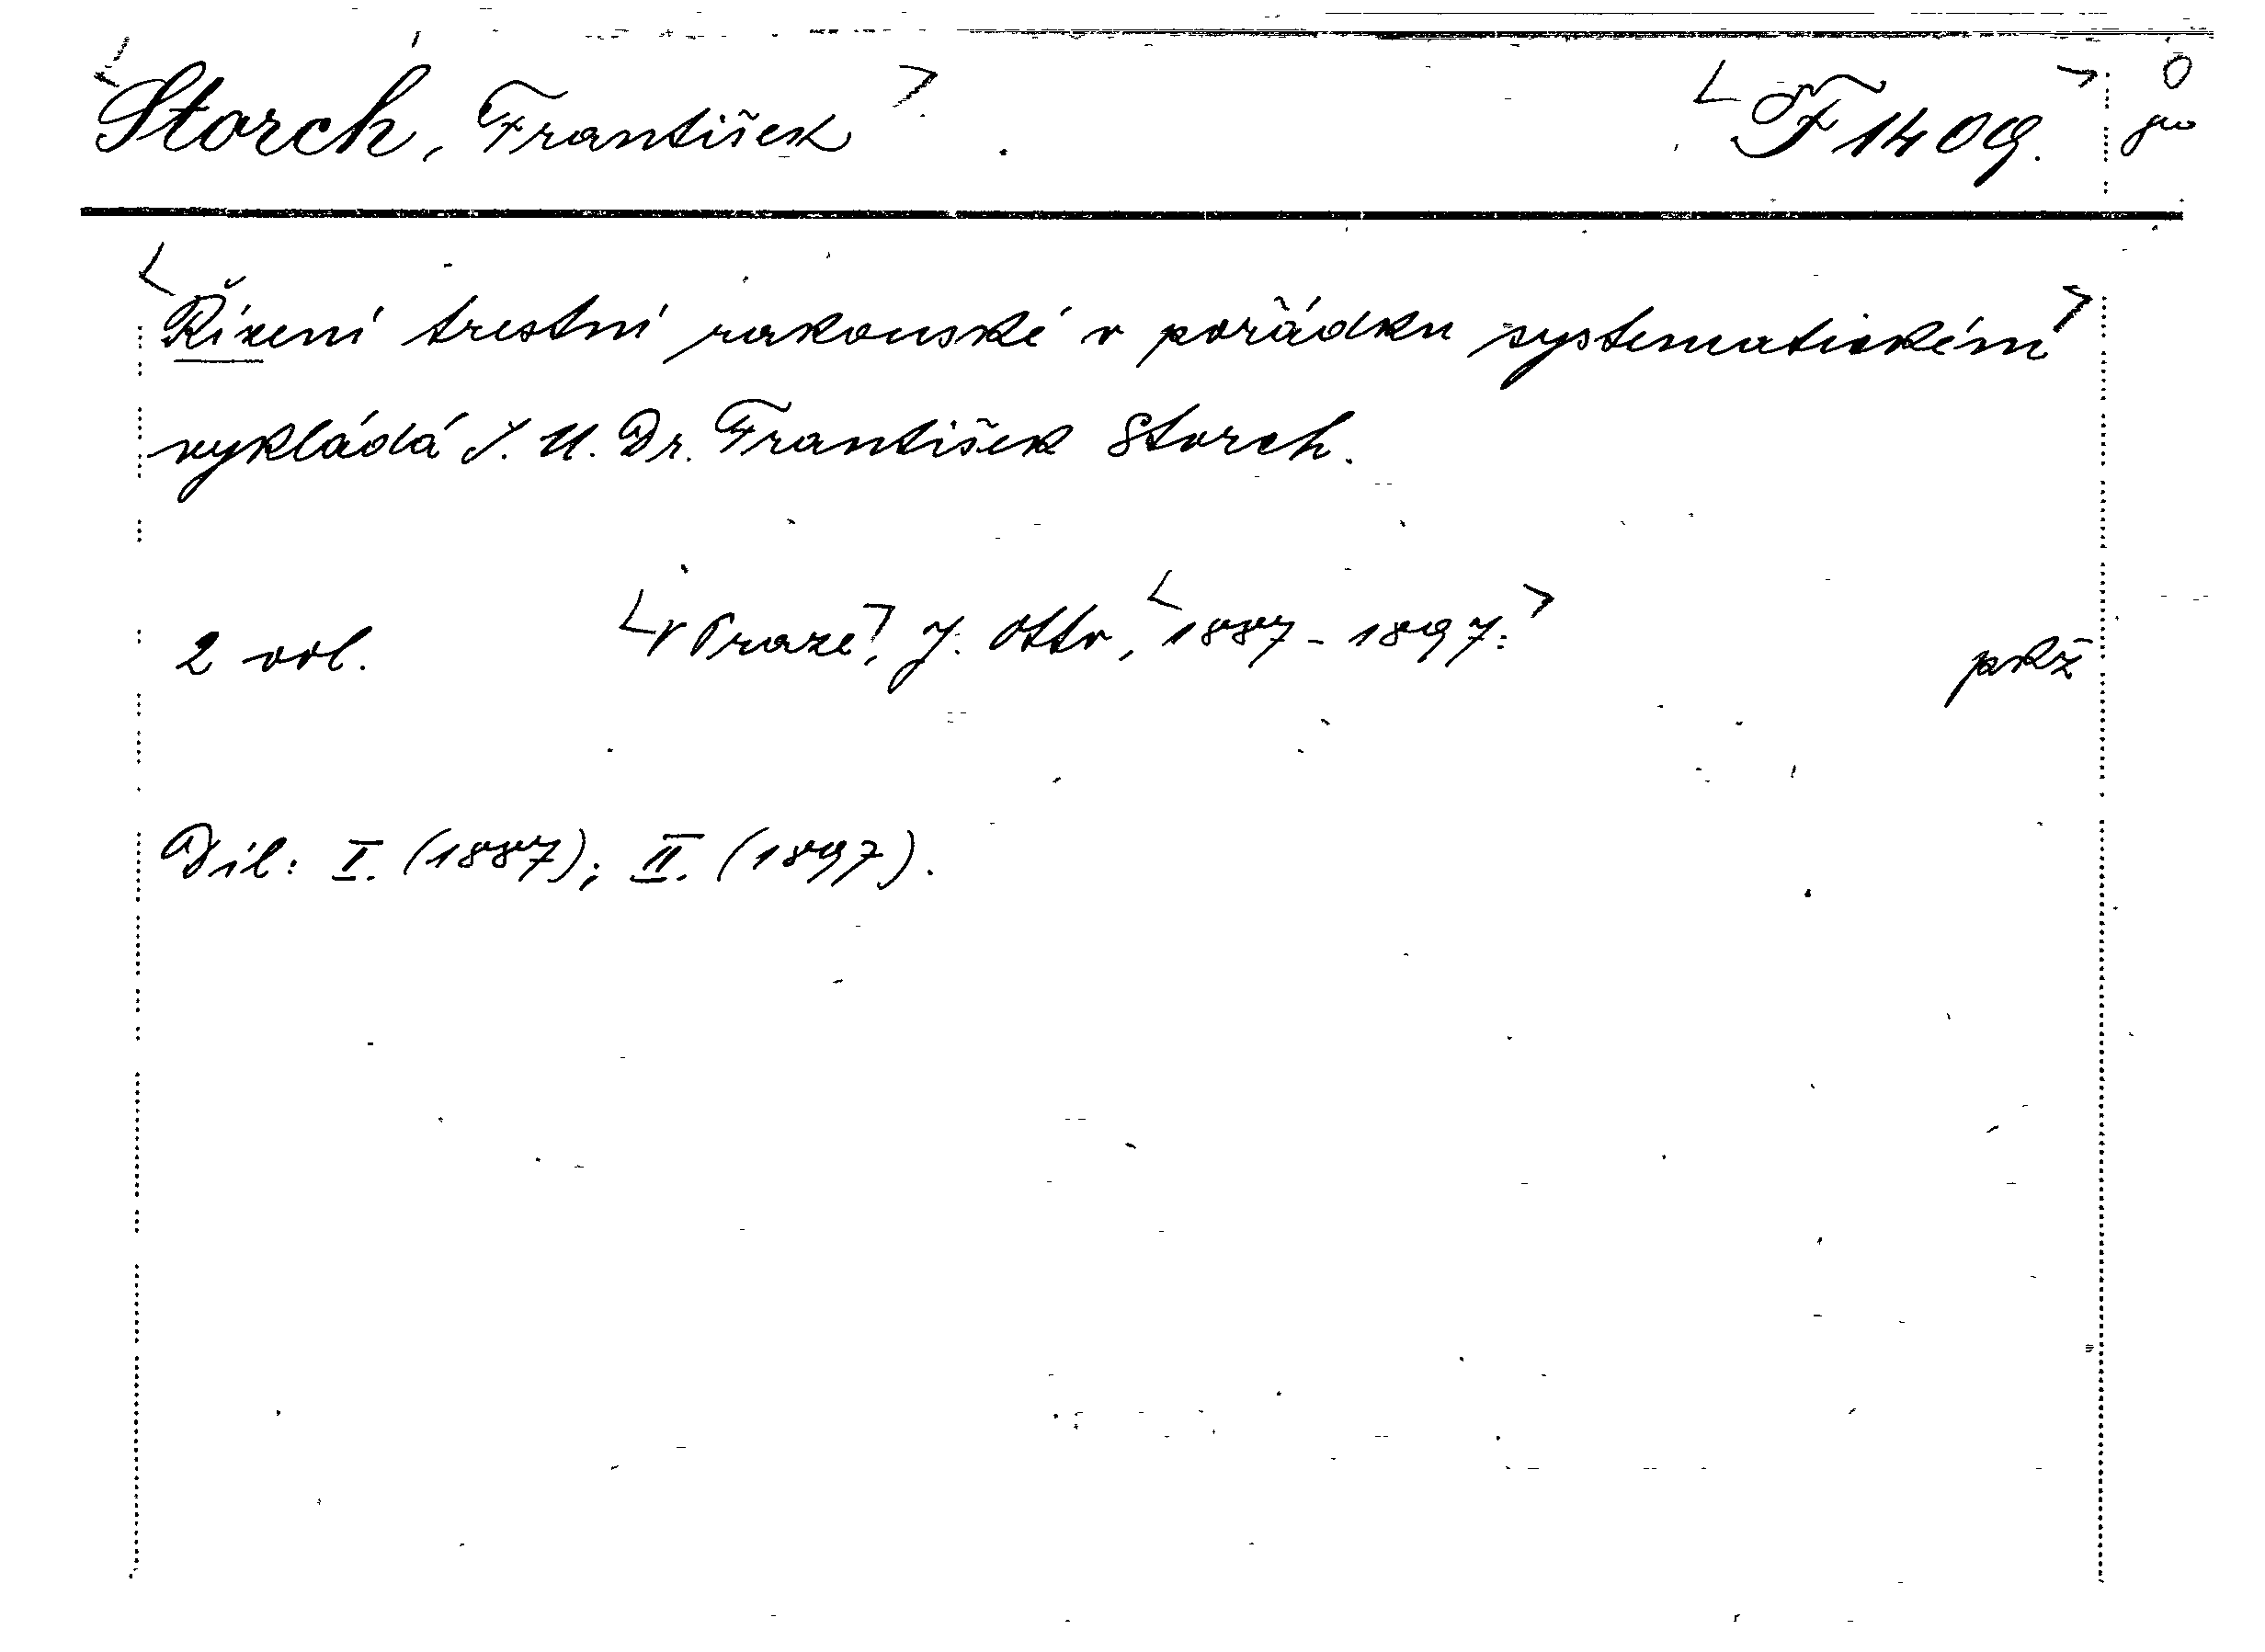 Storch, František F 1409.
Řízení trestní rakouské v pořádku systematickém
vykládá J. U. Dr. František Storch.
2 vol. V Praze, J. Otto, 1887-1897.
přž
Díl: I. (1887); II. (1897).